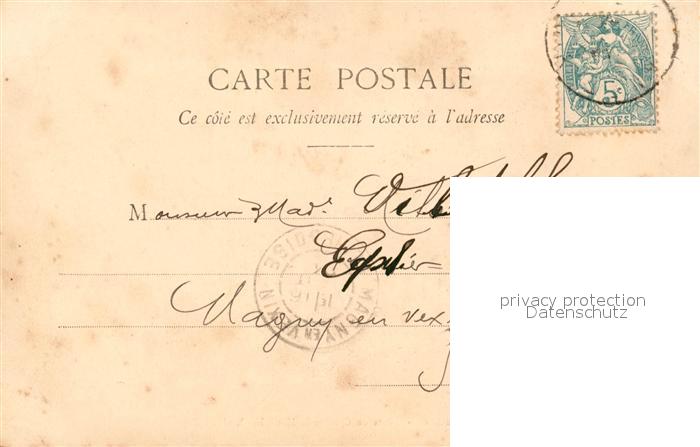 CARTE POSTALE
Ce côté est exclusivement réservé à l'adresse
5c
POSTES
Monsieur & Mad.
Magny en Vex
MAGNY EN VEXIN
privacy protection
Datenschutz